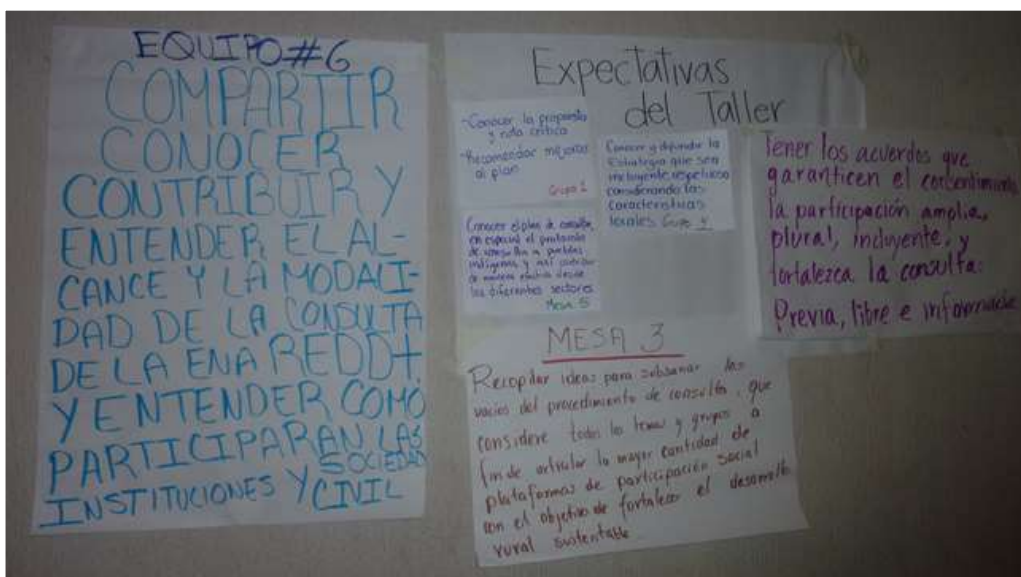 EQUIPO#6
COMPARTIR
CONOCER
CONTRIBUIR Y
ENTENDER EL AL-
CANCE Y LA MODALI-
DAD DE LA CONSULTA
DE LA ENA REDD+.
Y ENTENDER COMO
PARTICIPARAN LAS
INSTITUCIONES Y SOCIEDAD
CIVIL
Expectativas
del Taller
-Conocer la propuesta
y ruta crítica
-Recomendar mejoras
al plan
Grupo 1
Conocer y difundir la
Estrategia que sea
incluyente, respetuosa
considerando las
características
locales Grupo 4
Conocer el plan de consulta,
en especial el protocolo
de consulta a pueblos
indígenas y así
de manera efectiva desde
los diferentes sectores
Mesa 5
Tener los acuerdos que
garanticen el consentimiento
la participación amplia,
plural, incluyente, y
fortalezca la consulta:
Previa, libre e informada
MESA 3
Recopilar ideas para subsanar los
vacíos del procedimiento de consulta, que
considere todos los temas y grupos a
fin de articular la mayor cantidad de
plataformas de participación social
con el objetivo de fortalecer el desarrollo
rural sustentable